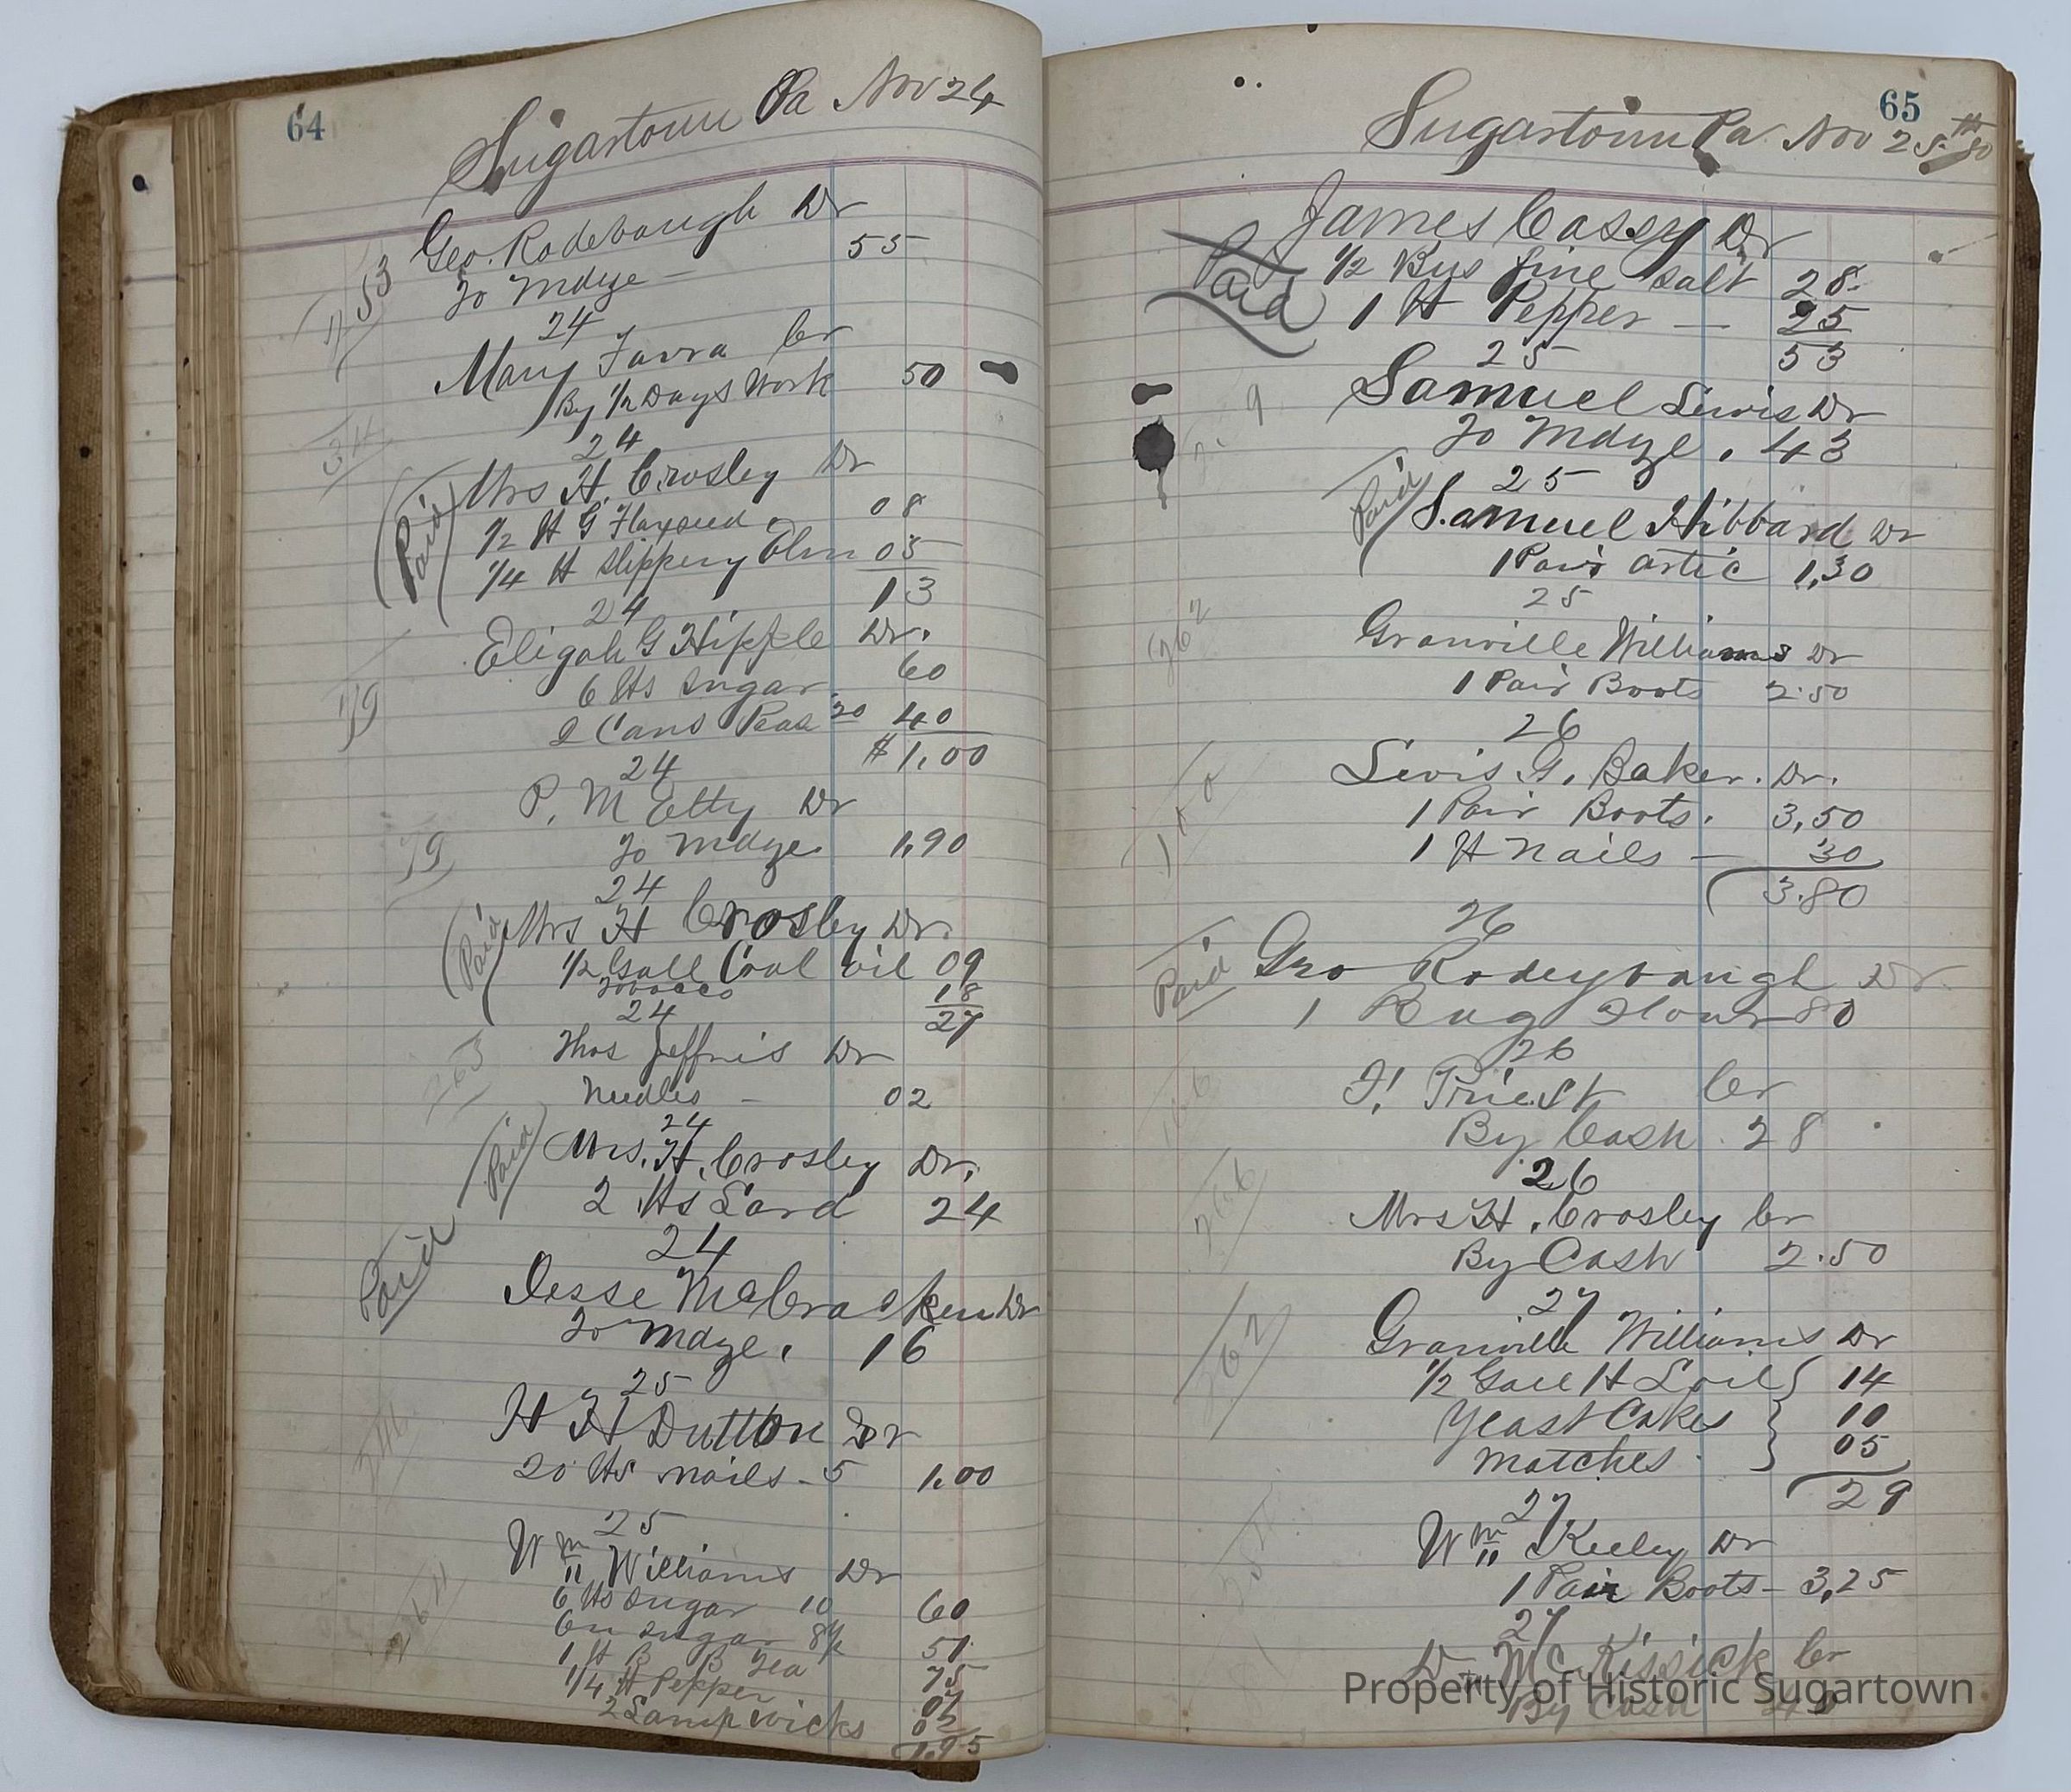 64
Sugartown Pa Nov 24
Geo. Rodebaugh Dr
To Mdze — 55
24
Mary Favra Cr
By 1/2 Days Work 50
24
Paid
Mrs H. Crosley Dr
1/2 lb G Flaxseed 08
1/4 lb Slippery Elm 05
13
24
Eligah G Hipple Dr.
6 lbs Sugar 60
2 Cans Peas 20 40
$1,00
79
24
P. M Etty Dr
To Mdze 1,90
79
24
Paid
Mrs H Crosley Dr.
1/2 Gall Coal oil 09
Tobacco 18
27
24
Thos Jeffris Dr
Needles — 02
263
24
Paid
Mrs. H. Crosley Dr.
2 lbs Lard 24
24
Paid
Jesse McCrasken Dr
To Mdze. 16
25
H H Dutton Dr
20 lbs nails - 5 1.00
25
Wm Williams Dr
6 lbs Sugar 10 60
6 " Sugar 8 1/2 51
1 lb B B Tea 75
1/4 lb Pepper 07
2 Lamp wicks 02
1.95
65
Sugartown Pa. Nov 25th 80
James Casey Dr
Paid
1/2 Bus fine Salt 28
1 lb Pepper — 25
53
25
Samuel Lewis Dr
To Mdze. 43
25
Paid
Samuel Hibbard Dr
1 Pair artic 1,30
25
262
Granville Williams Dr
1 Pair Boots 2.50
26
Lewis G. Baker. Dr.
1 Pair Boots. 3,50
1 lb Nails — 30
3.80
26
Paid
Geo Rodeybaugh Dr.
1 Bag Flour 80
26
J. Priest Cr
By Cash 28
26
266
Mrs H. Crosley Cr
By Cash 2.50
27
262
Granville Williams Dr
1/2 Gall H L oil 14
Yeast Cakes 10
Matches 05
29
27
Wm Keeley Dr
1 Pair Boots — 3,25
27
D McKissick Cr
By Cash
Property of Historic Sugartown